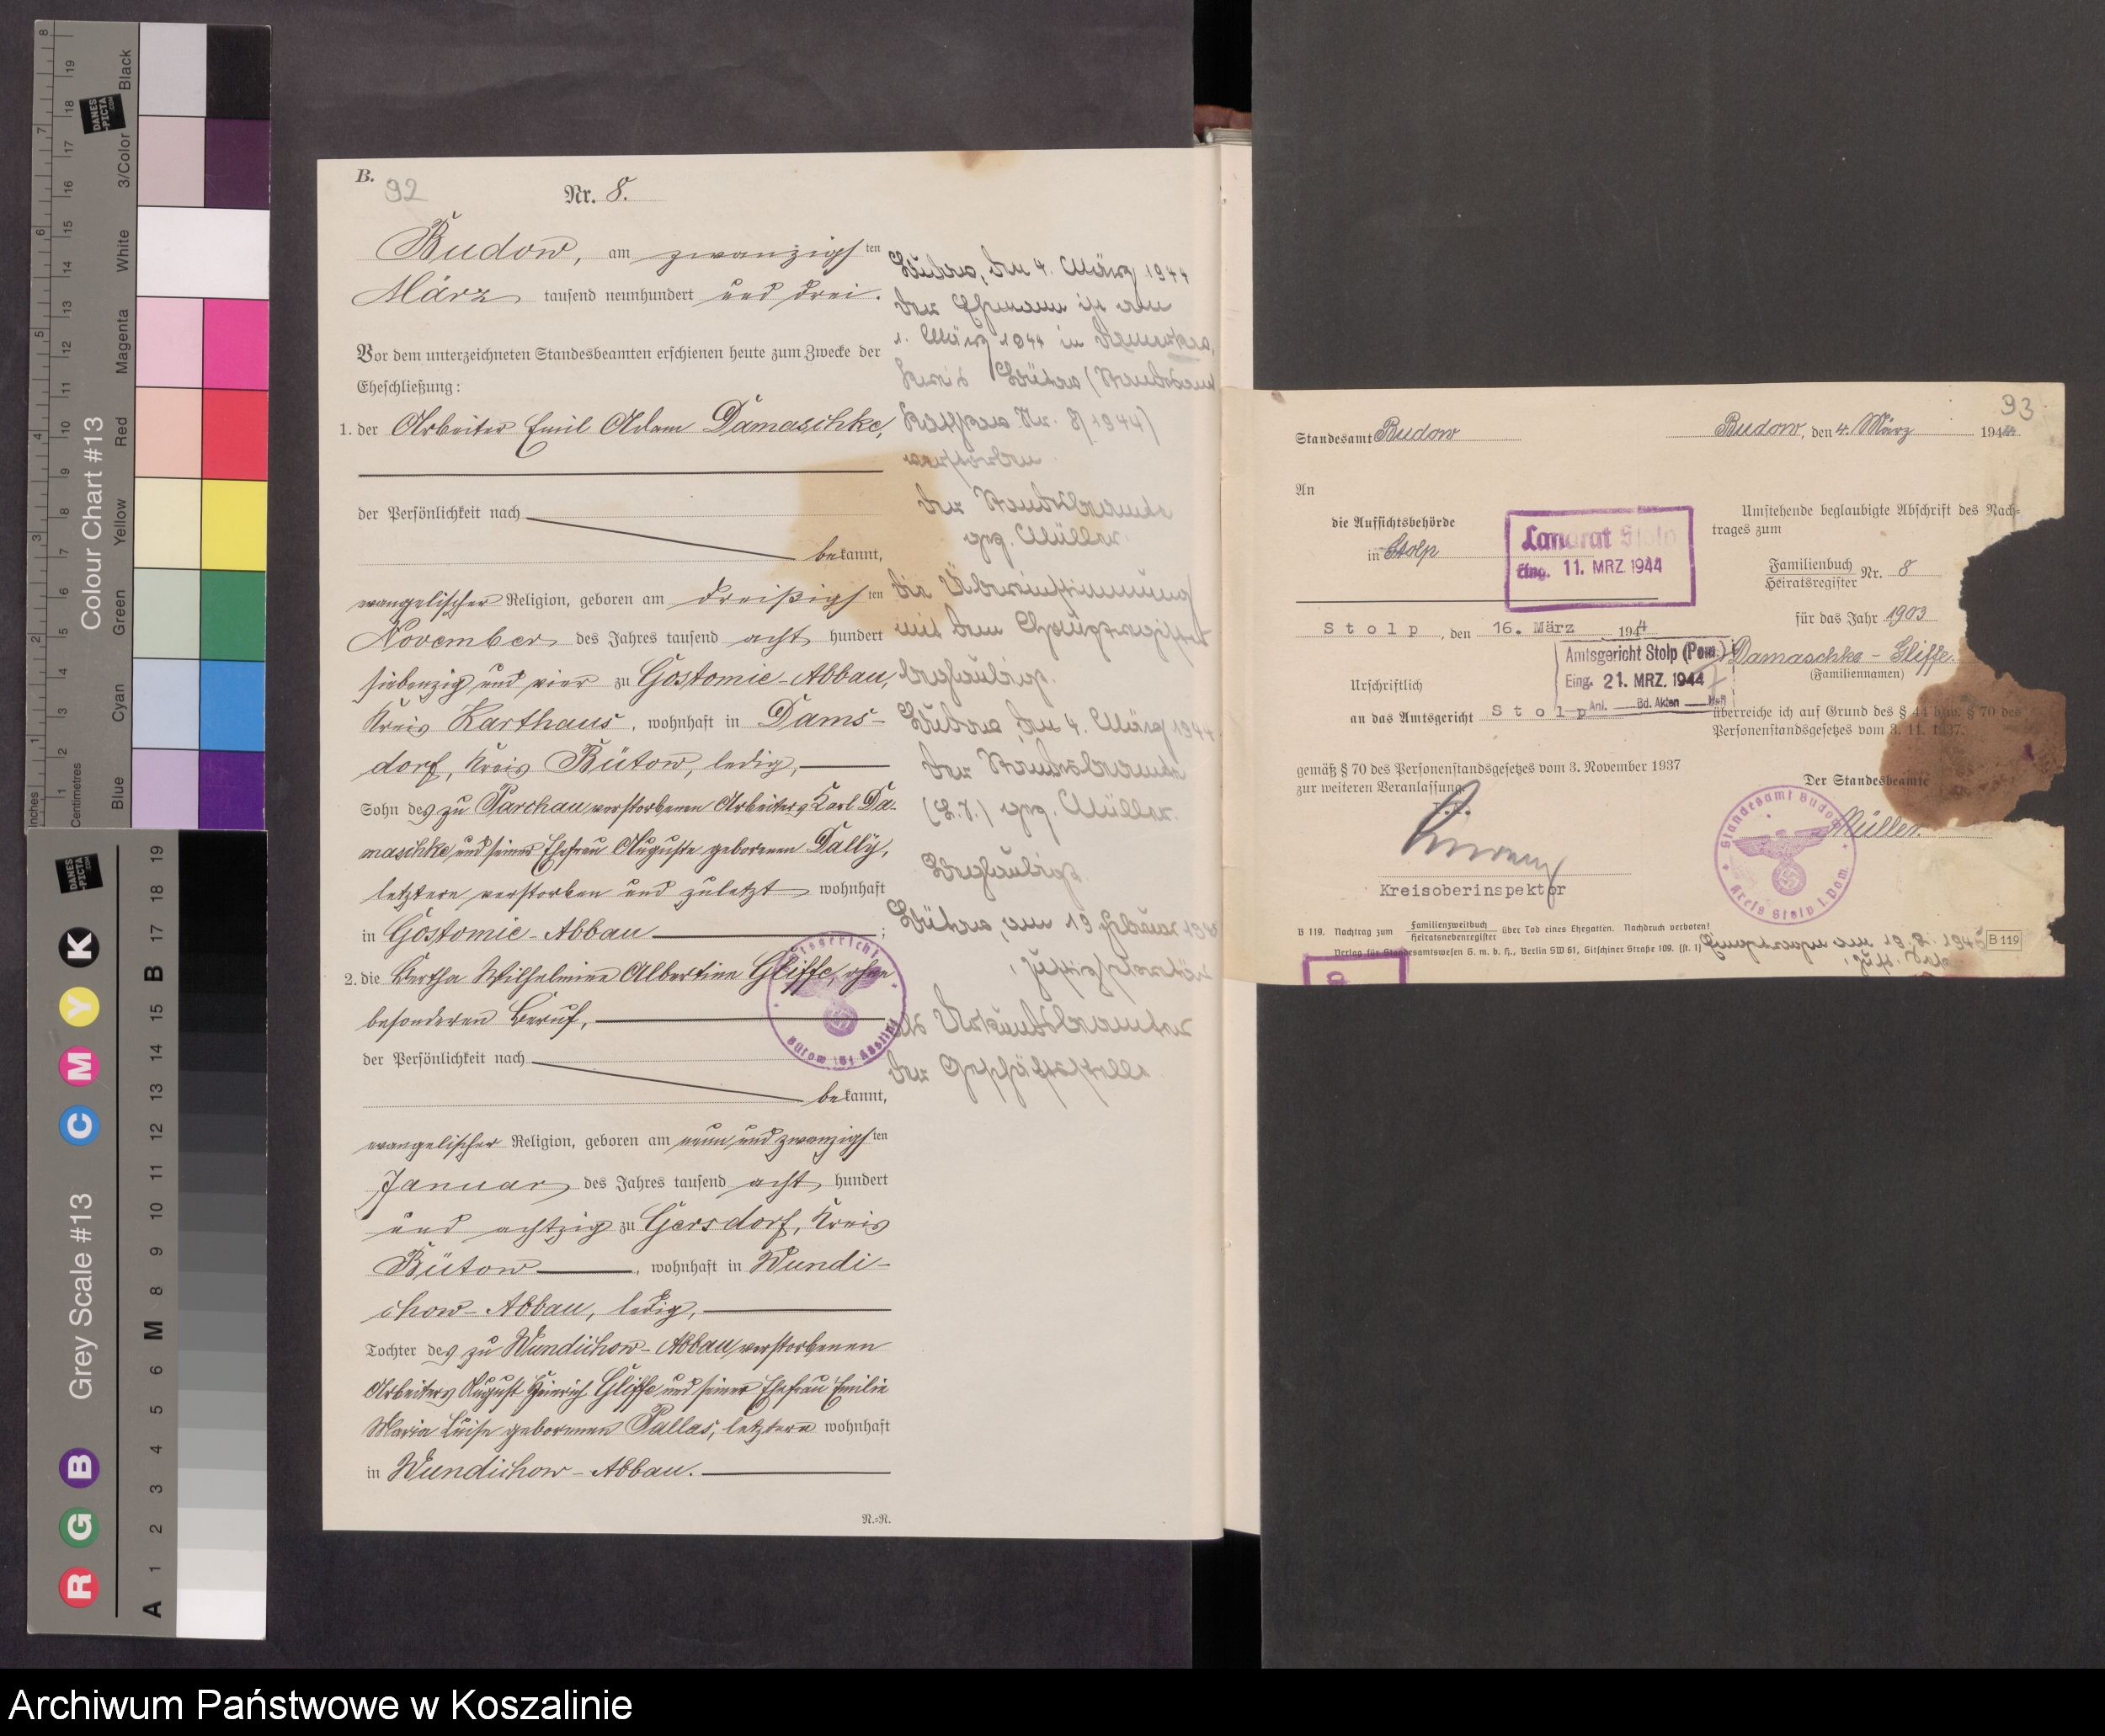 B.
92
Nr. 8.
Budow, am zwanzigsten
März tausend neunhundert und drei.
Vor dem unterzeichneten Standesbeamten erschienen heute zum Zwecke der
Eheschließung:
1. der Arbeiter Emil Adam Damaschke,
der Persönlichkeit nach
bekannt,
evangelischer Religion, geboren am dreißigsten
November des Jahres tausend acht hundert
siebenzig und vier zu Gostomie-Abbau,
Kreis Karthaus, wohnhaft in Dams-
dorf, Kreis Bütow, ledig,
Sohn des zu Parchau verstorbenen Arbeiters Karl Da-
maschke und seiner Ehefrau Auguste geborenen Dally,
letztere verstorben und zuletzt wohnhaft
in Gostomie-Abbau ;
2. die Bertha Wilhelmine Albertine Gliffe, ohne
besonderen Beruf,
der Persönlichkeit nach
bekannt,
evangelischer Religion, geboren am neun und zwanzigsten
Januar des Jahres tausend acht hundert
und achtzig zu Gersdorf, Kreis
Bütow, wohnhaft in Wundi-
chow-Abbau, ledig,
Tochter des zu Wundichow-Abbau verstorbenen
Arbeiters August Heinrich Gliffe und seiner Ehefrau Emilie
Maria Luise geborenen Pallas, letztere wohnhaft
in Wundichow-Abbau.
N.-R.
Budow, den 4. März 1944
Der Ehemann ist am
1. März 1944 in
Kreis Bütow (Standesamt
Nr. 8/1944)
verstorben.
Der Standesbeamte
gez. Müller.
Die Übereinstimmung
mit dem Hauptregister
beglaubigt.
Budow, den 4. März 1944
Der Standesbeamte
(L.S.) gez. Müller.
Beglaubigt.
Bütow, am 19 Februar 194
Justizsekretär
als Urkundsbeamter
der Geschäftsstelle
93
Standesamt Budow
Budow, den 4. März 1944
An
die Aufsichtsbehörde
in Stolp
Landrat Stolp
Eing. 11. MRZ. 1944
Umstehende beglaubigte Abschrift des Nach-
trages zum
Familienbuch
Heiratsregister Nr. 8
für das Jahr 1903
Stolp, den 16. März 1944
Amtsgericht Stolp (Pom.)
Eing. 21. MRZ. 1944
Anl. Bd. Akten Heft
Damaschke - Gliffe.
(Familiennamen)
Urschriftlich
an das Amtsgericht Stolp
überreiche ich auf Grund des § 44 bzw. § 70 des
Personenstandsgesetzes vom 3. 11. 1937.
gemäß § 70 des Personenstandsgesetzes vom 3. November 1937
zur weiteren Veranlassung.
Der Standesbeamte
Müller.
Standesamt Budow
Kreis Stolp i. Pom.
Kreisoberinspektor
B 119. Nachtrag zum Familienzweitbuch
Heiratsnebenregister über Tod eines Ehegatten. Nachdruck verboten!
Verlag für Standesamtswesen G. m. b. H., Berlin SW 61, Gitschiner Straße 109. (st. 1)
B 119
Eingetragen am 19.2.1945
Archiwum Państwowe w Koszalinie
Colour Chart #13
Grey Scale #13
DANES
-PICTA
.COM
Inches
Centimetres
Black
3/Color
White
Magenta
Red
Yellow
Green
Cyan
Blue
R G B C M Y K
A M B